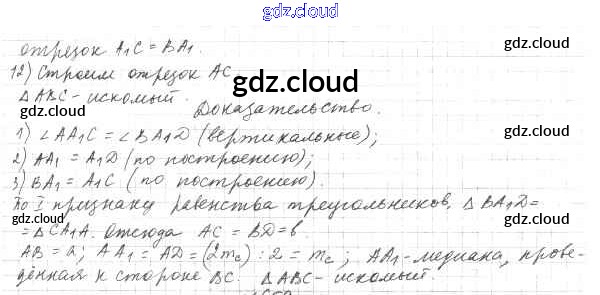 gdz.cloud
отрезок A₁C = BA₁.
gdz.cloud
12) Строим отрезок AC
gdz.cloud
△ABC - искомый.
gdz.cloud
Доказательство.
gdz.cloud
1) ∠AA₁C = ∠BA₁D (вертикальные);
gdz.cloud
2) AA₁ = A₁D (по построению);
gdz.cloud
3) BA₁ = A₁C (по построению).
По I признаку равенства треугольников, △BA₁D =
gdz.cloud
= △CA₁A. Отсюда AC = BD = b.
gdz.cloud
AB = a; AA₁ = AD = (2mc) : 2 = mc; AA₁ - медиана, прове-
дённая к стороне BC. △ABC - искомый.
gdz.cloud
gdz.cloud